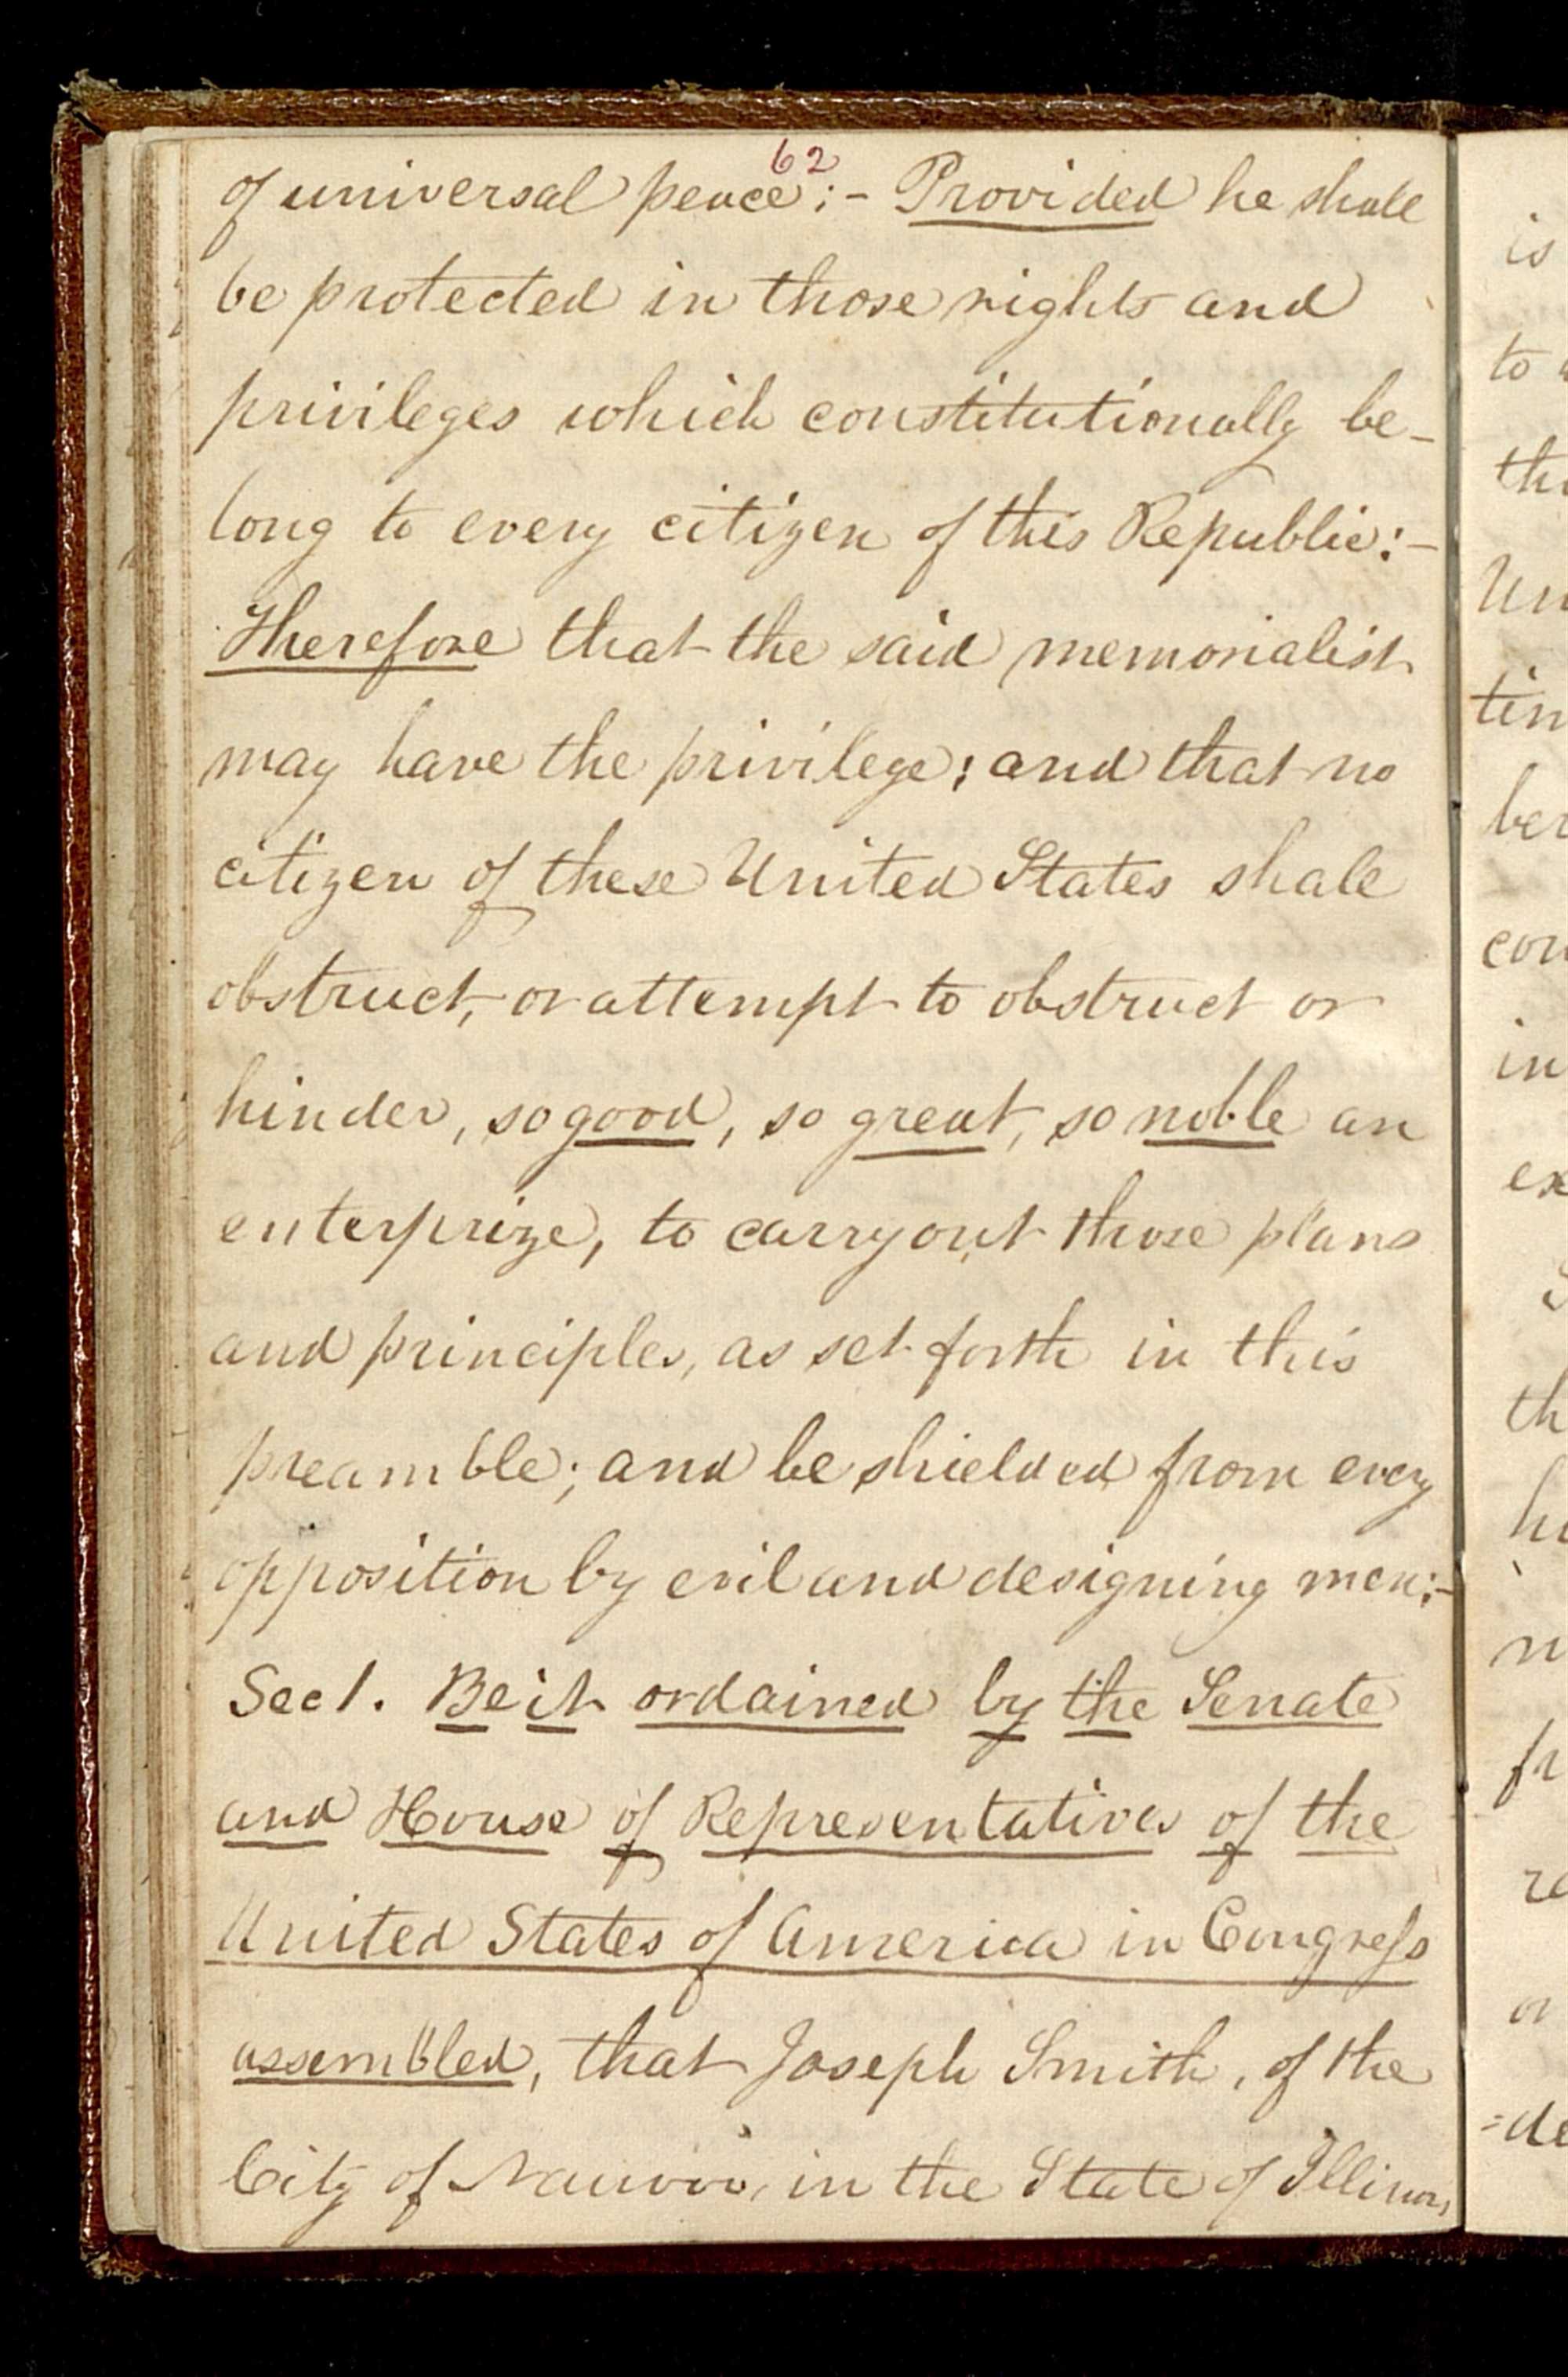 62
of universal peace;- Provided he shall
be protected in those rights and
privileges which constitutionally be-
long to every citizen of this Republic:-
Therefore that the said memorialist
may have the privilege; and that no
citizen of these United States shall
obstruct, or attempt to obstruct or
hinder, so good, so great, so noble an
enterprize, to carry out those plans
and principles, as set forth in this
preamble; and be shielded from every
opposition by evil and designing men:-
Sec 1. Be it ordained by the Senate
and House of Representatives of the
United States of America in Congress
assembled, that Joseph Smith, of the
City of Nauvoo, in the State of Illinois,
is
to
Un
tin
ber
con
in
ex
th
fr
or
=de